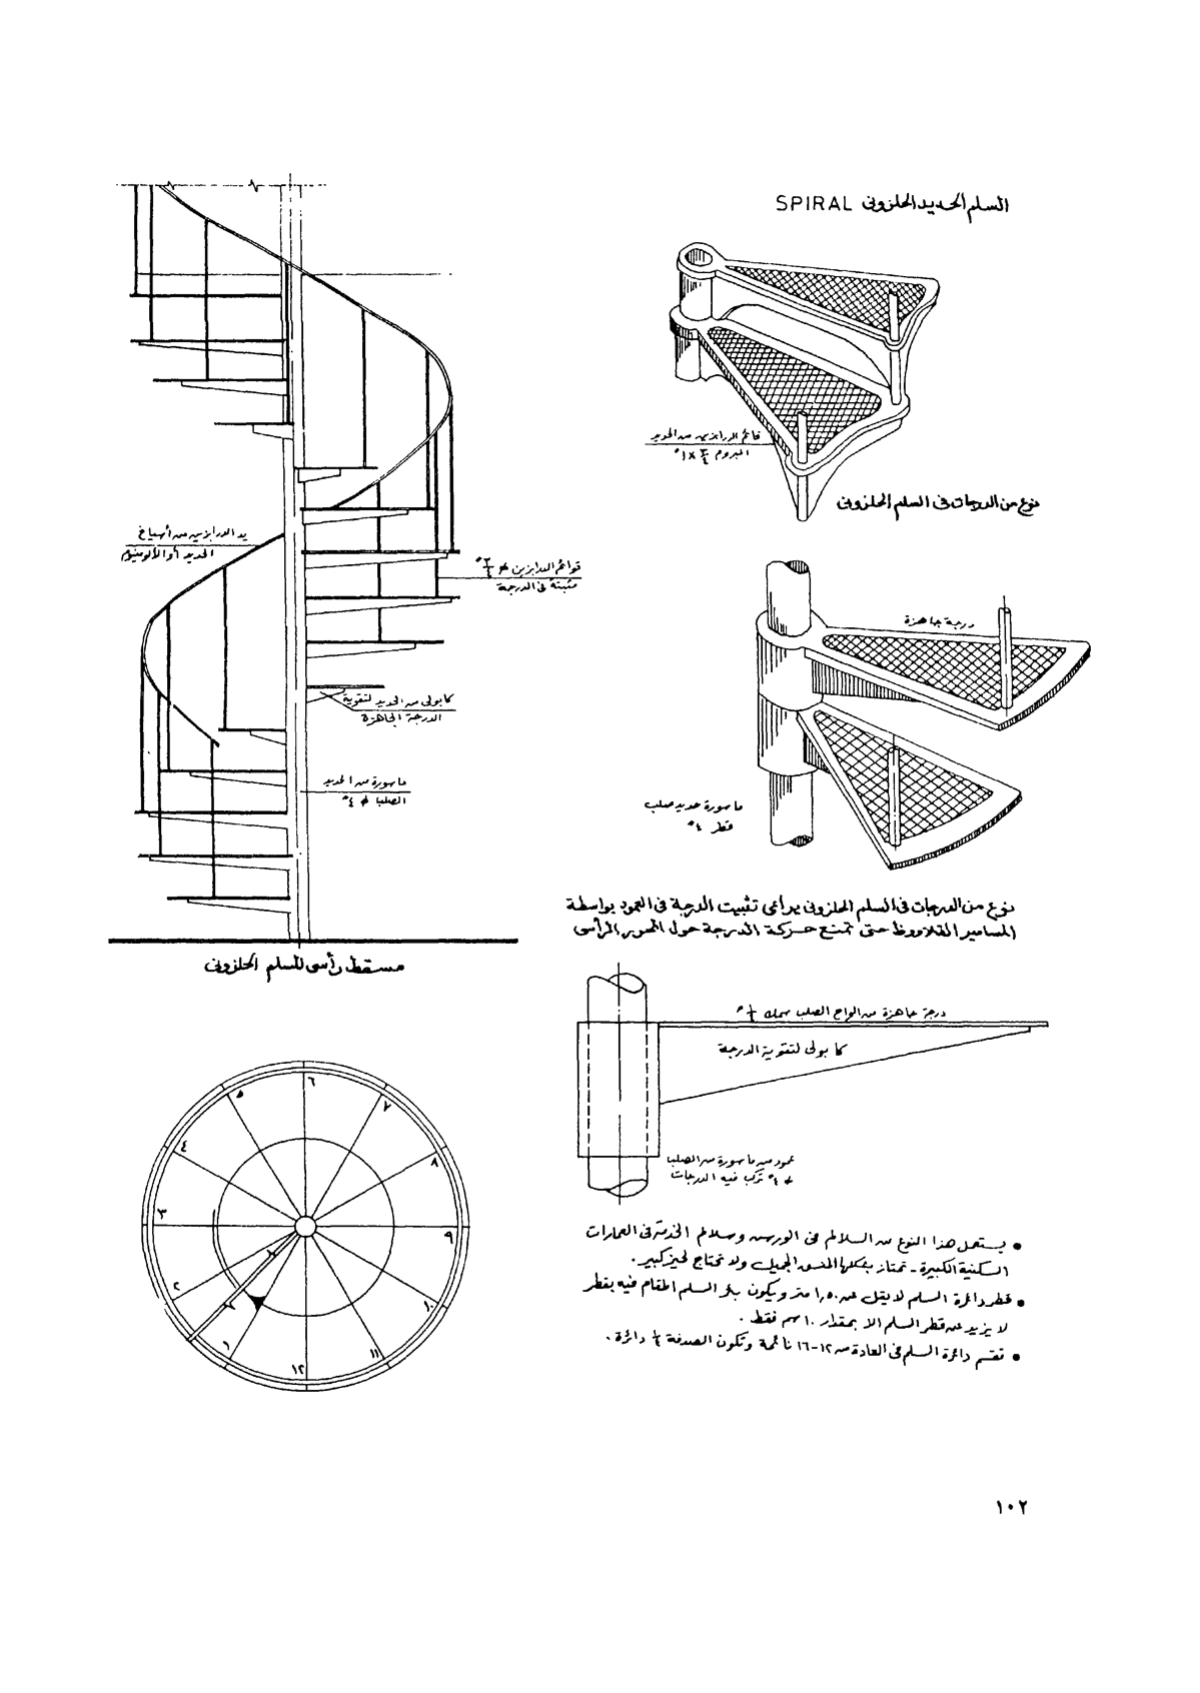 السلم الحديد الحلزونى SPIRAL
قائم الدرابزين من الحديد
المبروم ٣/٤ × ١"
نوع من الدرجات فى السلم الحلزونى
يد الدرابزين من أسياخ
الحديد أو الألومنيوم
قوائم الدرابزين ϕ ٣/٤"
مثبتة فى الدرجة
كابولى من الحديد لتقوية
الدرجة الجاهزة
ماسورة من الحديد
الصلب ϕ ٤"
مسقط رأسى للسلم الحلزونى
درجة جاهزة
ماسورة حديد صلب
قطر ٤"
نوع من الدرجات فى السلم الحلزونى يراعى تثبيت الدرجة فى العمود بواسطة
المسامير القلاووظ حتى تمنع حركة الدرجة حول المحور الرأسى
درجة جاهزة من الواح الصلب سمك ١/٤"
كابولى لتقوية الدرجة
عمود من ماسورة من الصلب
ϕ ٤" تركب فيه الدرجات
١
٢
٣
٤
٥
٦
٧
٨
٩
١٠
١١
١٢
• يستعمل هذا النوع من السلالم فى الورش وسلالم الخدمة فى العمارات
السكنية الكبيرة - تمتاز بشكلها المنسق الجميل ولا تحتاج لحيز كبير .
• قطر دائرة السلم لا يقل عن ١,٥٠ متر ويكون بئر السلم المقام فيه بقطر
لا يزيد عن قطر السلم الا بمقدار ١٠ سم فقط .
• تقسم دائرة السلم فى العادة من ١٢-١٦ نائمة وتكون الصدفة ١/٤ دائرة .
١٠٢